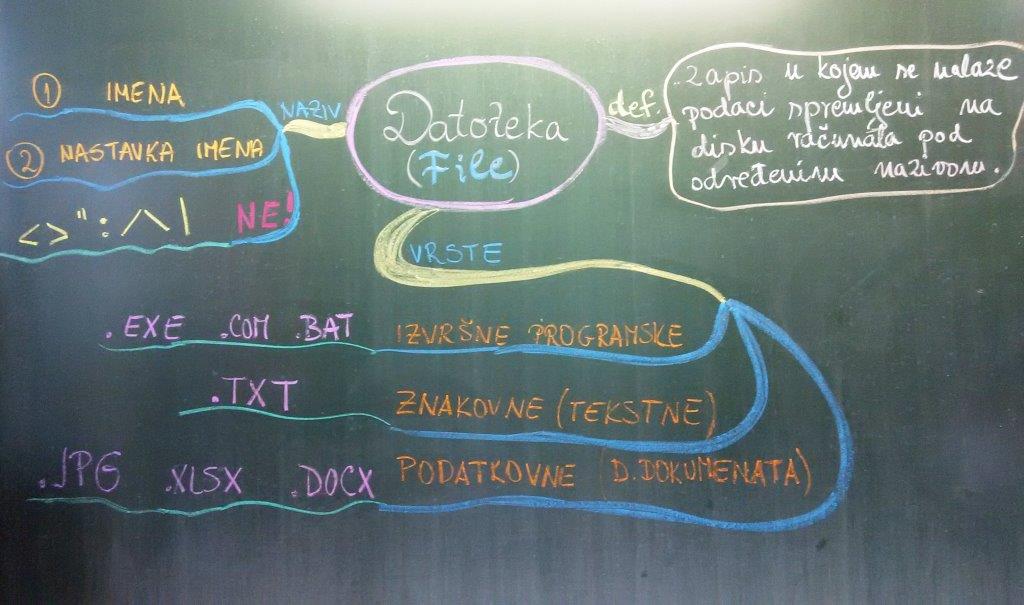 Datoteka
(File)
def.
Zapis u kojem se nalaze
podaci spremljeni na
disku računala pod
određenim nazivom.
NAZIV
① IMENA
② NASTAVKA IMENA
< > " : / \ | NE!
VRSTE
.EXE .COM .BAT IZVRŠNE PROGRAMSKE
.TXT ZNAKOVNE (TEKSTNE)
.JPG .XLSX .DOCX PODATKOVNE (D. DOKUMENATA)